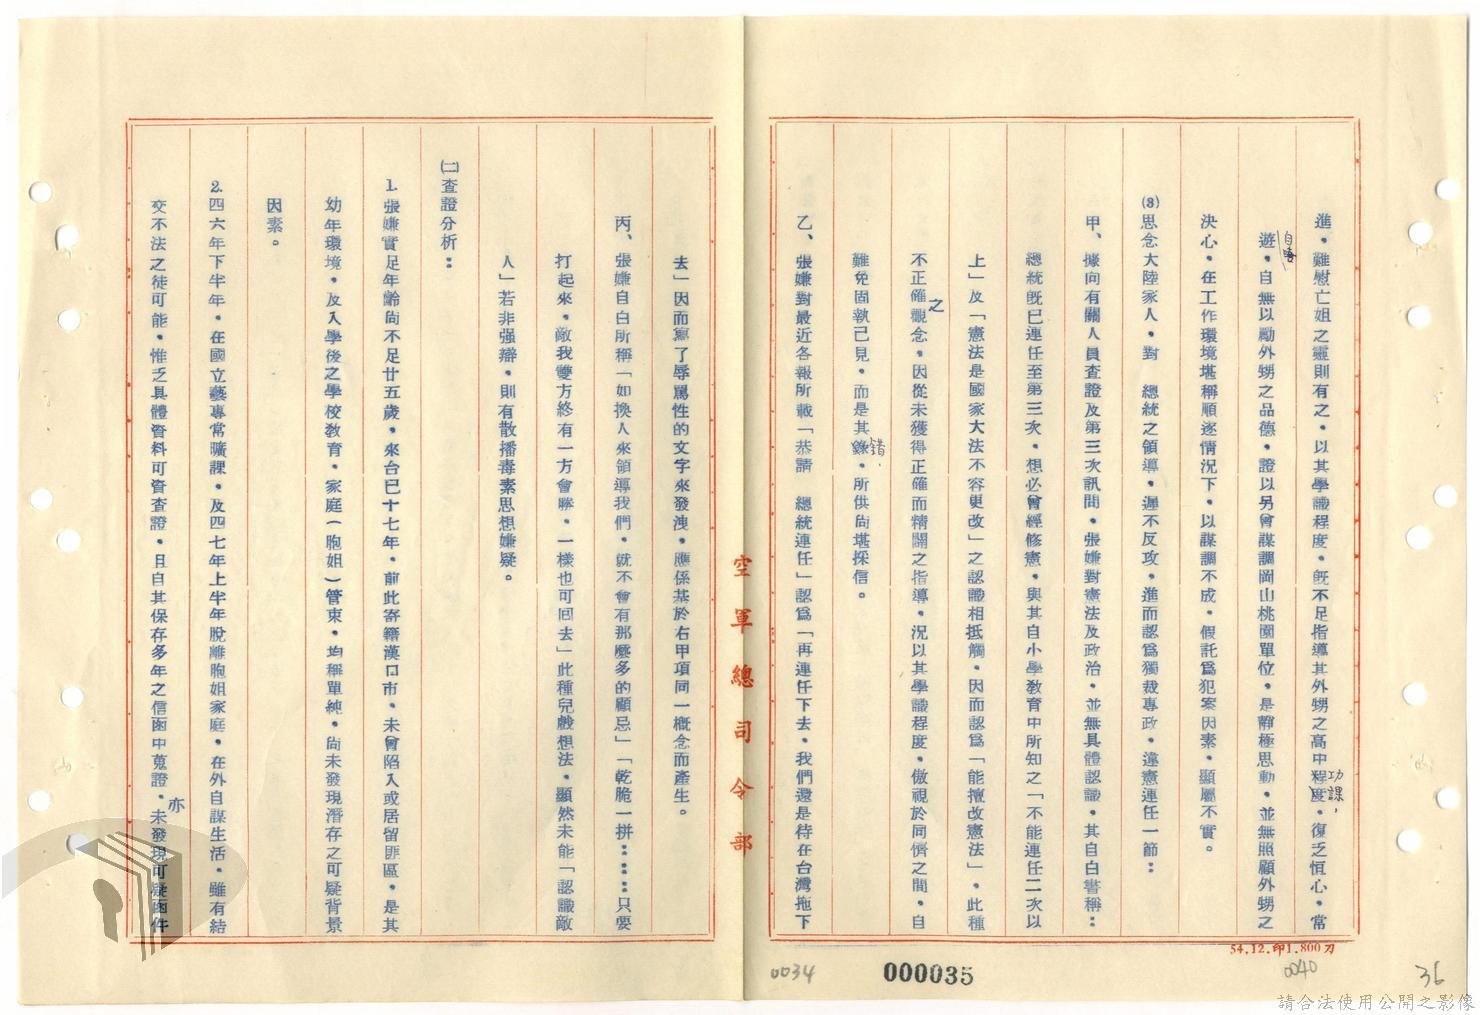 進，難慰亡姐之靈則有之，以其學識程度，旣不足指導其外甥之高中程度，復乏恒心，常
功課，
遊，自無以勵外甥之品德，證以另曾謀調岡山桃園單位，是靜極思動，並無照顧外甥之
決心，在工作環境堪稱順遂情況下，以謀調不成，假託爲犯案因素，顯屬不實。
(3)思念大陸家人，對　總統之領導，遲不反攻，進而認爲獨裁專政，違憲連任一節：
甲、據向有關人員查證及第三次訊問，張嫌對憲法及政治，並無具體認識，其自白書稱：
總統旣已連任至第三次，想必曾經修憲，與其自小學敎育中所知之「不能連任二次以
上」及「憲法是國家大法不容更改」之認識相抵觸，因而認爲「能擅改憲法」，此種
不正確之觀念，因從未獲得正確而精闢之指導，況以其學識程度，傲視於同儕之間，自
難免固執己見，而是其錯，所供尙堪採信。
乙、張嫌對最近各報所載「恭請　總統連任」認爲「再連任下去，我們還是待在台灣拖下
空軍總司令部
去」因而寫了辱罵性的文字來發洩，應係基於右甲項同一概念而產生。
丙、張嫌自白所稱「如換人來領導我們，就不會有那麼多的顧忌」「乾脆一拼……只要
打起來，敵我雙方終有一方會勝，一樣也可回去」此種兒戲想法，顯然未能「認識敵
人」若非强辯，則有散播毒素思想嫌疑。
㈡查證分析：
1.張嫌實足年齡尙不足廿五歲，來台已十七年，前此寄籍漢口市，未曾陷入或居留匪區，是其
幼年環境，及入學後之學校敎育，家庭(胞姐)管束，均稱單純，尙未發現潛存之可疑背景
因素。
2.四六年下半年，在國立藝專常曠課，及四七年上半年脫離胞姐家庭，在外自謀生活，雖有結
交不法之徒可能，惟乏具體資料可資查證，且自其保存多年之信函中蒐證，亦未發現可疑函件
54.12.印1.800刀
0034
000035
0040
36
請合法使用公開之影像